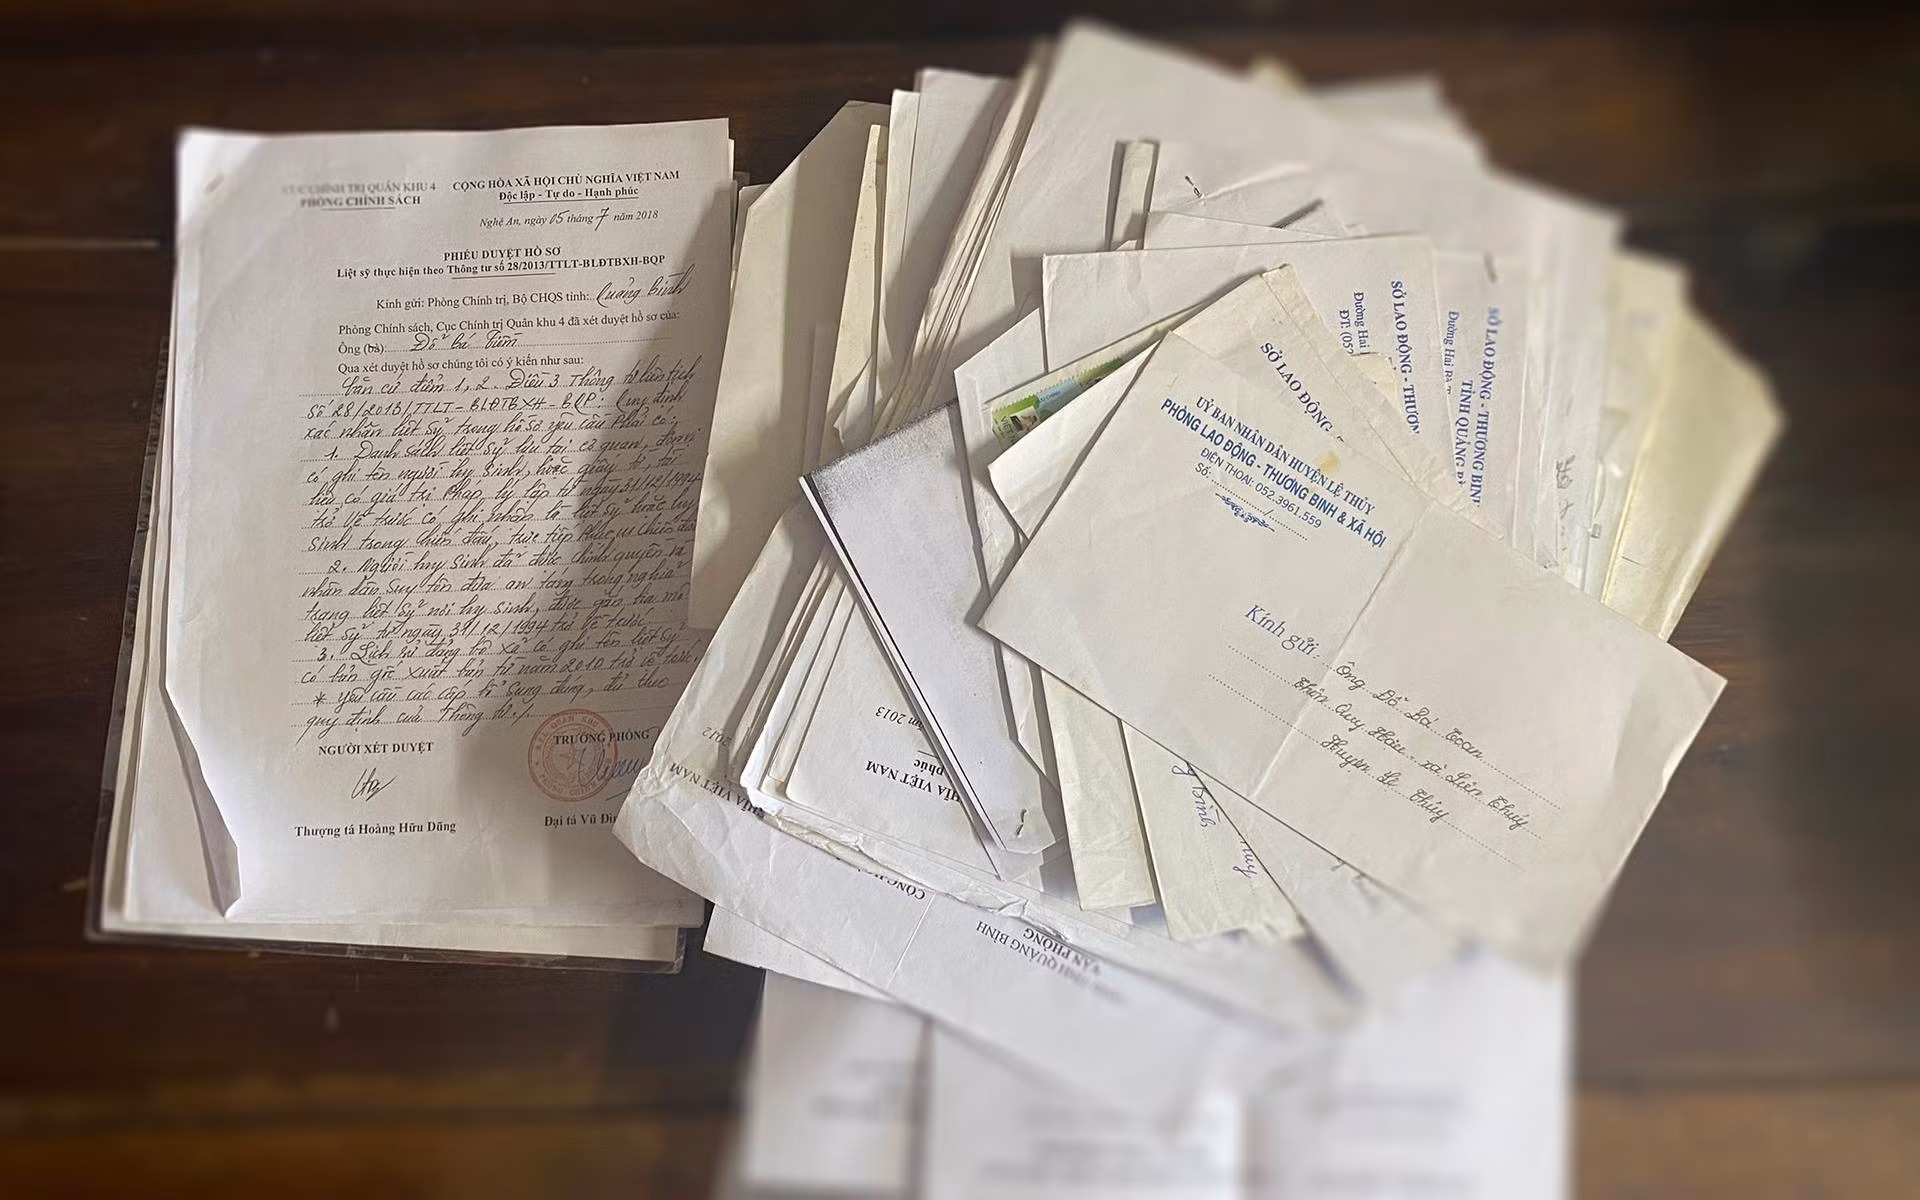 CỤC CHÍNH TRỊ QUÂN KHU 4
PHÒNG CHÍNH SÁCH
CỘNG HÒA XÃ HỘI CHỦ NGHĨA VIỆT NAM
Độc lập - Tự do - Hạnh phúc
Nghệ An, ngày 05 tháng 7 năm 2018
PHIẾU DUYỆT HỒ SƠ
Liệt sỹ thực hiện theo Thông tư số 28/2013/TTLT-BLĐTBXH-BQP
Kính gửi: Phòng Chính trị, Bộ CHQS tỉnh: Quảng Bình
Phòng Chính sách, Cục Chính trị Quân khu 4 đã xét duyệt hồ sơ của:
Ông (bà): Đỗ Bá
Qua xét duyệt hồ sơ chúng tôi có ý kiến như sau:
Căn cứ điểm 1, 2. Điều 3 Thông tư liên tịch
Số 28/2013/TTLT-BLĐTBXH-BQP: Quy định
xác nhận liệt sỹ trong hồ sơ yêu cầu phải có:
1. Danh sách liệt sỹ lưu tại cơ quan, đơn vị
có ghi tên người hy sinh, hoặc giấy tờ, tài
liệu có giá trị pháp lý lập từ ngày 31/12/1994
trở về trước có ghi nhận là liệt sỹ hoặc hy
sinh trong chiến đấu, trực tiếp phục vụ chiến đấu
2. Người hy sinh đã được chính quyền và
nhân dân suy tôn đưa an táng trong nghĩa
trang liệt sỹ nơi hy sinh, được gắn bia mộ
liệt sỹ từ ngày 31/12/1994 trở về trước.
3. Lịch sử đảng bộ xã có ghi tên liệt sỹ
có bản gốc xuất bản từ năm 2010 trở về trước.
* Yêu cầu các cấp bổ sung đúng, đủ theo
quy định của Thông tư./.
NGƯỜI XÉT DUYỆT
TRƯỞNG PHÒNG
Thượng tá Hoàng Hữu Dũng
Đại tá Vũ
ỦY BAN NHÂN DÂN HUYỆN LỆ THỦY
PHÒNG LAO ĐỘNG - THƯƠNG BINH & XÃ HỘI
ĐIỆN THOẠI: 052.3961.559
Số:
Kính gửi: Ông Đỗ Bá Toan
Thôn Quy Hậu - xã Liên Thủy
Huyện Lệ Thủy
SỞ LAO ĐỘNG -
SỞ LAO ĐỘNG - THƯƠN
Đường Hai
ĐT: (052
SỞ LAO ĐỘNG - THƯƠNG BINH
TỈNH QUẢNG
Đường Hai Bà
2013
VIỆT NAM
phúc
2012
VIỆT NAM
CỘNG
QUẢNG BÌNH
VĂN PHÒNG